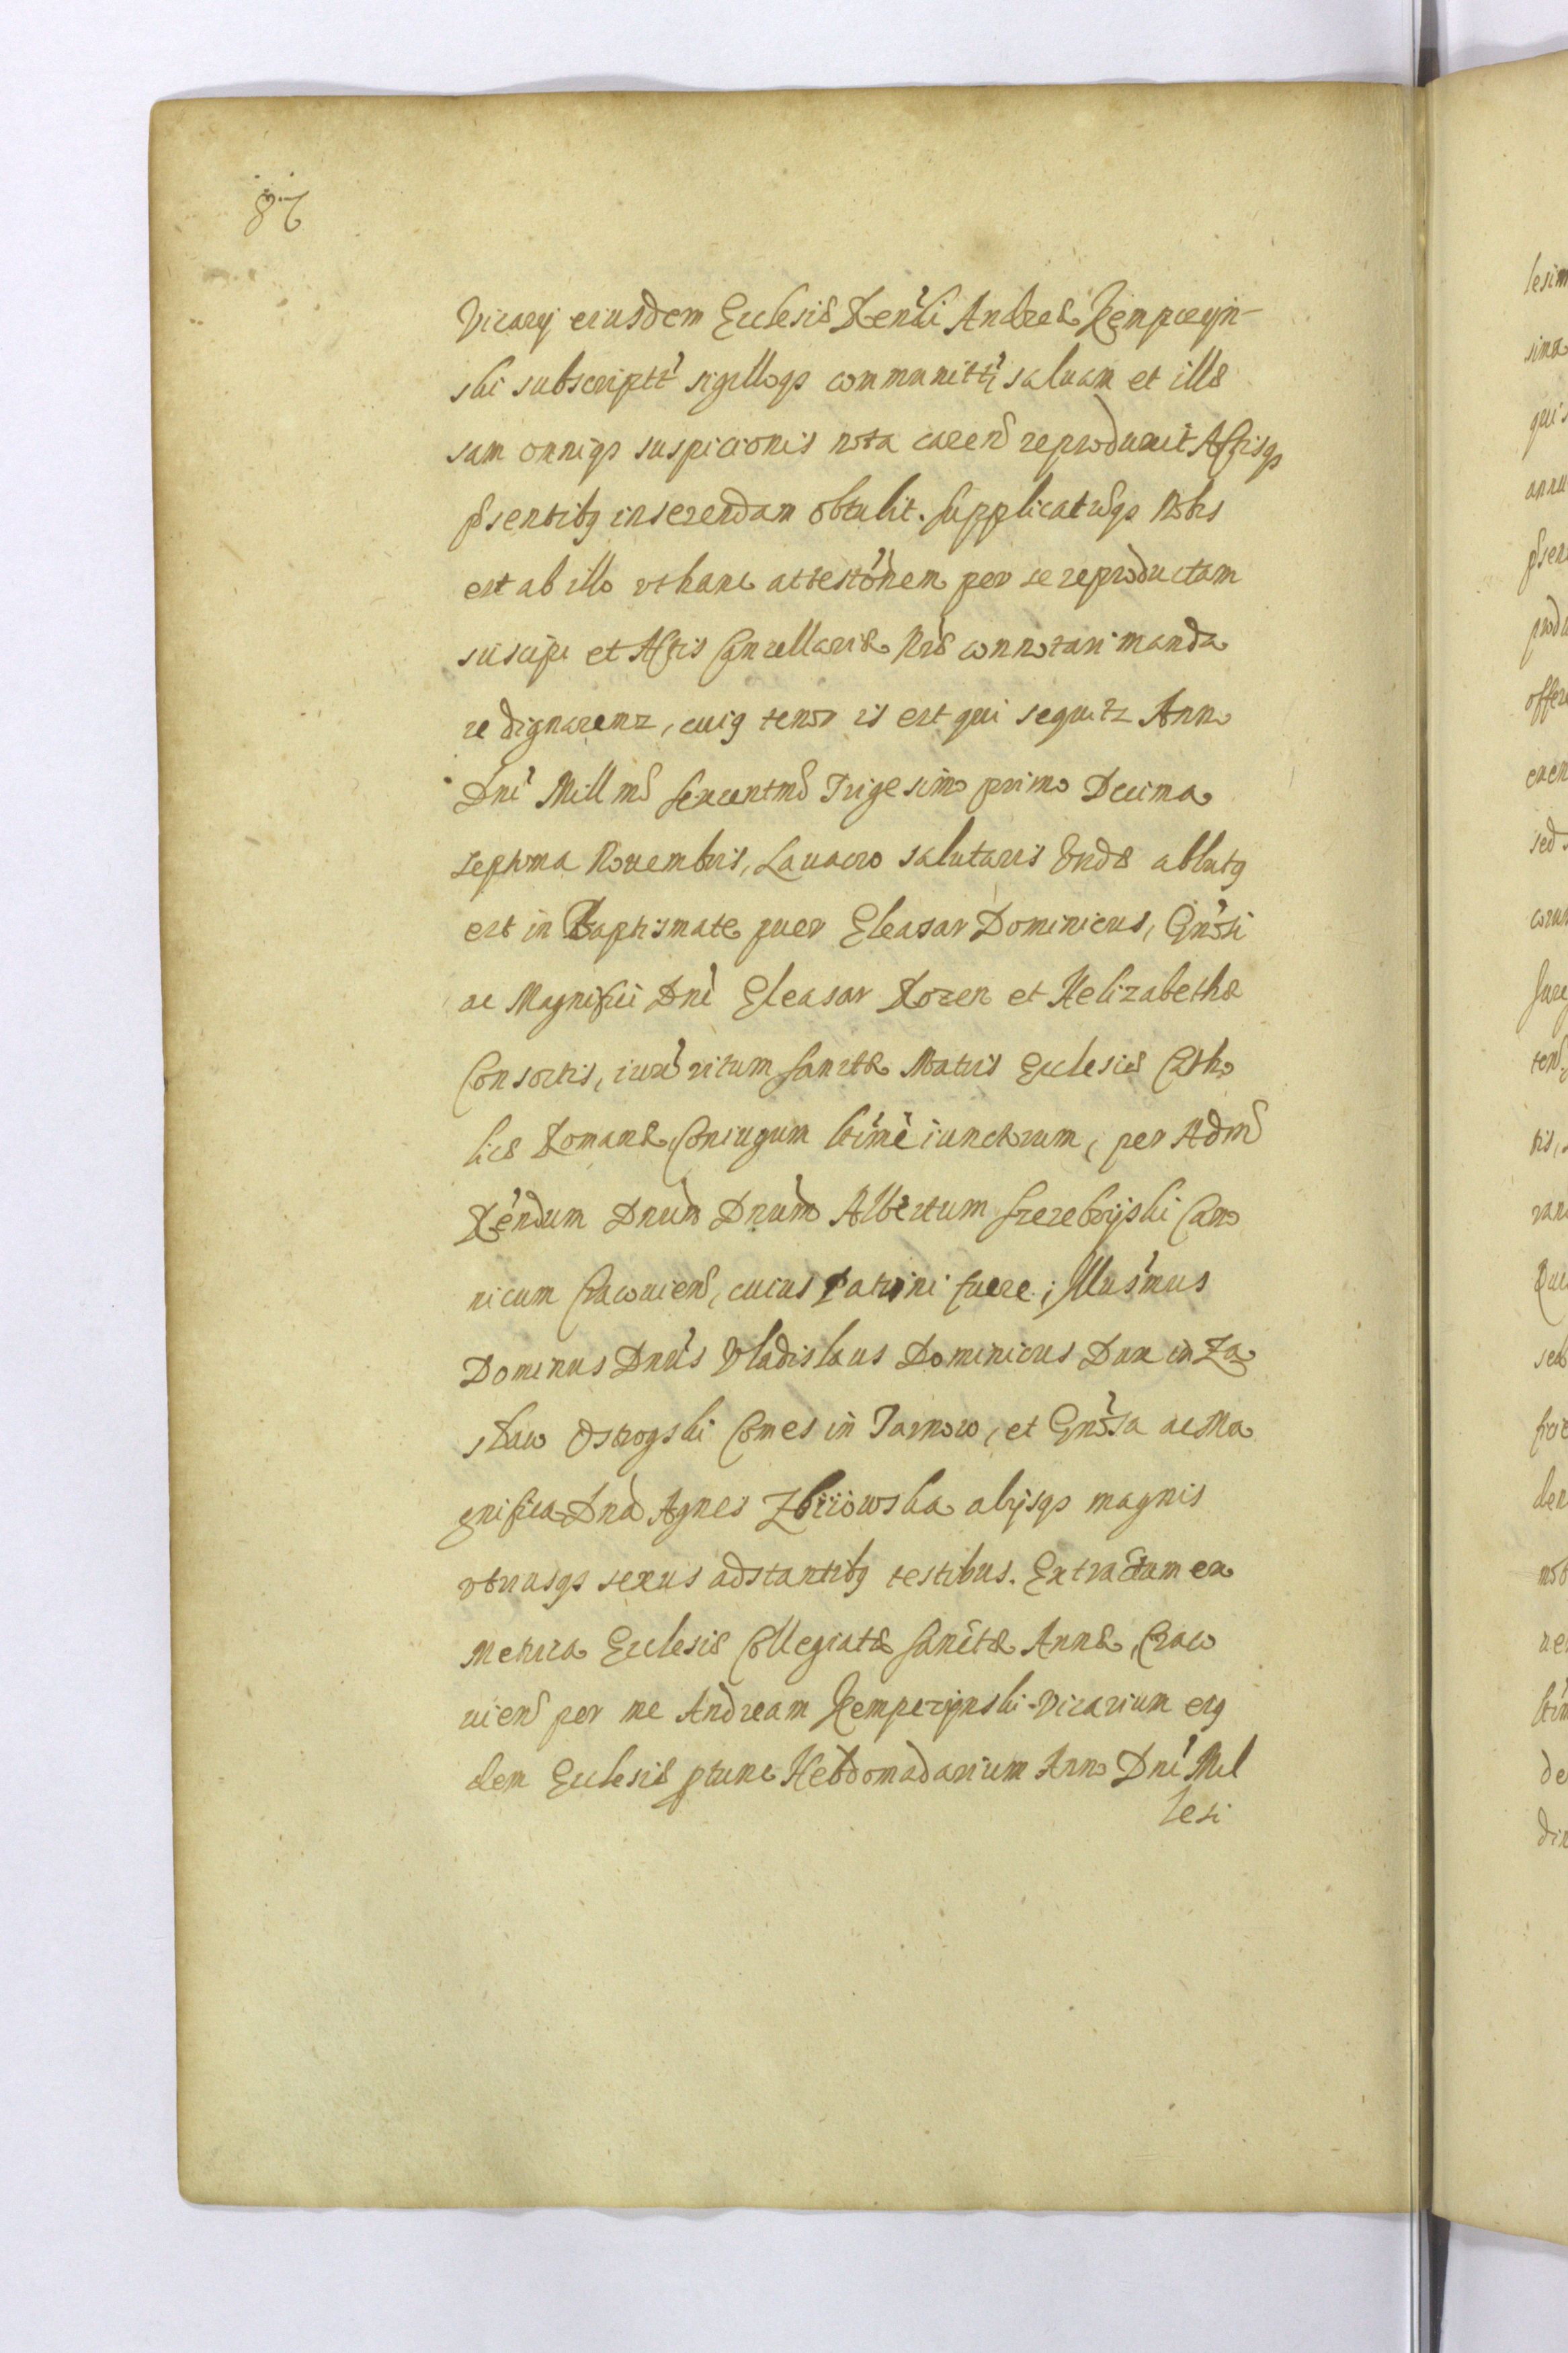 86
Vicarij eiusdem Ecclesiæ Rendi Andreæ Kempczyn-
ski subscriptt sigilloq3 communitt saluam et illæ
sam omniq3 suspicionis nota caren reproduxit Actisq3
psentibq inserendam obtulit. Supplicatuq3 Nobis
est ab illo vt hanc attestonem per se reproductam
suscipi et Actis Cancellariæ Nræ connotari manda
re dignaremr, cuiq tenor is est qui sequitr Anno
Dni Millmo Sexcentmo Trigesimo primo Decima
septima Nouembris, Lauacro salutaris Vndæ ablutq
est in Baptismate puer Eleasar Dominicus, Gnosi
ac Magnifici Dni Eleasar Rozen et Helizabethæ
Consortis, iuxa ritum Sanctæ Matris Ecclesiæ Catho
licæ Romanæ Coniugum ltime iunctorum, per Adm
Rendum Dnum Dnum Albertum Szerebryski Cano
nicum Cracouien, cuius Patrini fuere; Illusmus
Dominus Dnus Vladislaus Dominicus Dux in Za
slaw Ostrogski Comes in Tarnow, et Gnosa ac Ma
gnifica Dna Agnes Zbiiowska alijsq3 magnis
vtriusq3 sexus adstantibq testibus. Extractum ex
Metrica Ecclesiæ Collegiatæ Sanctæ Annæ, Craco
uien per me Andream Kemperynski Vicarium eiq
dem Ecclesiæ ptunc Hebdomadarium Anno Dni Mil
lesi